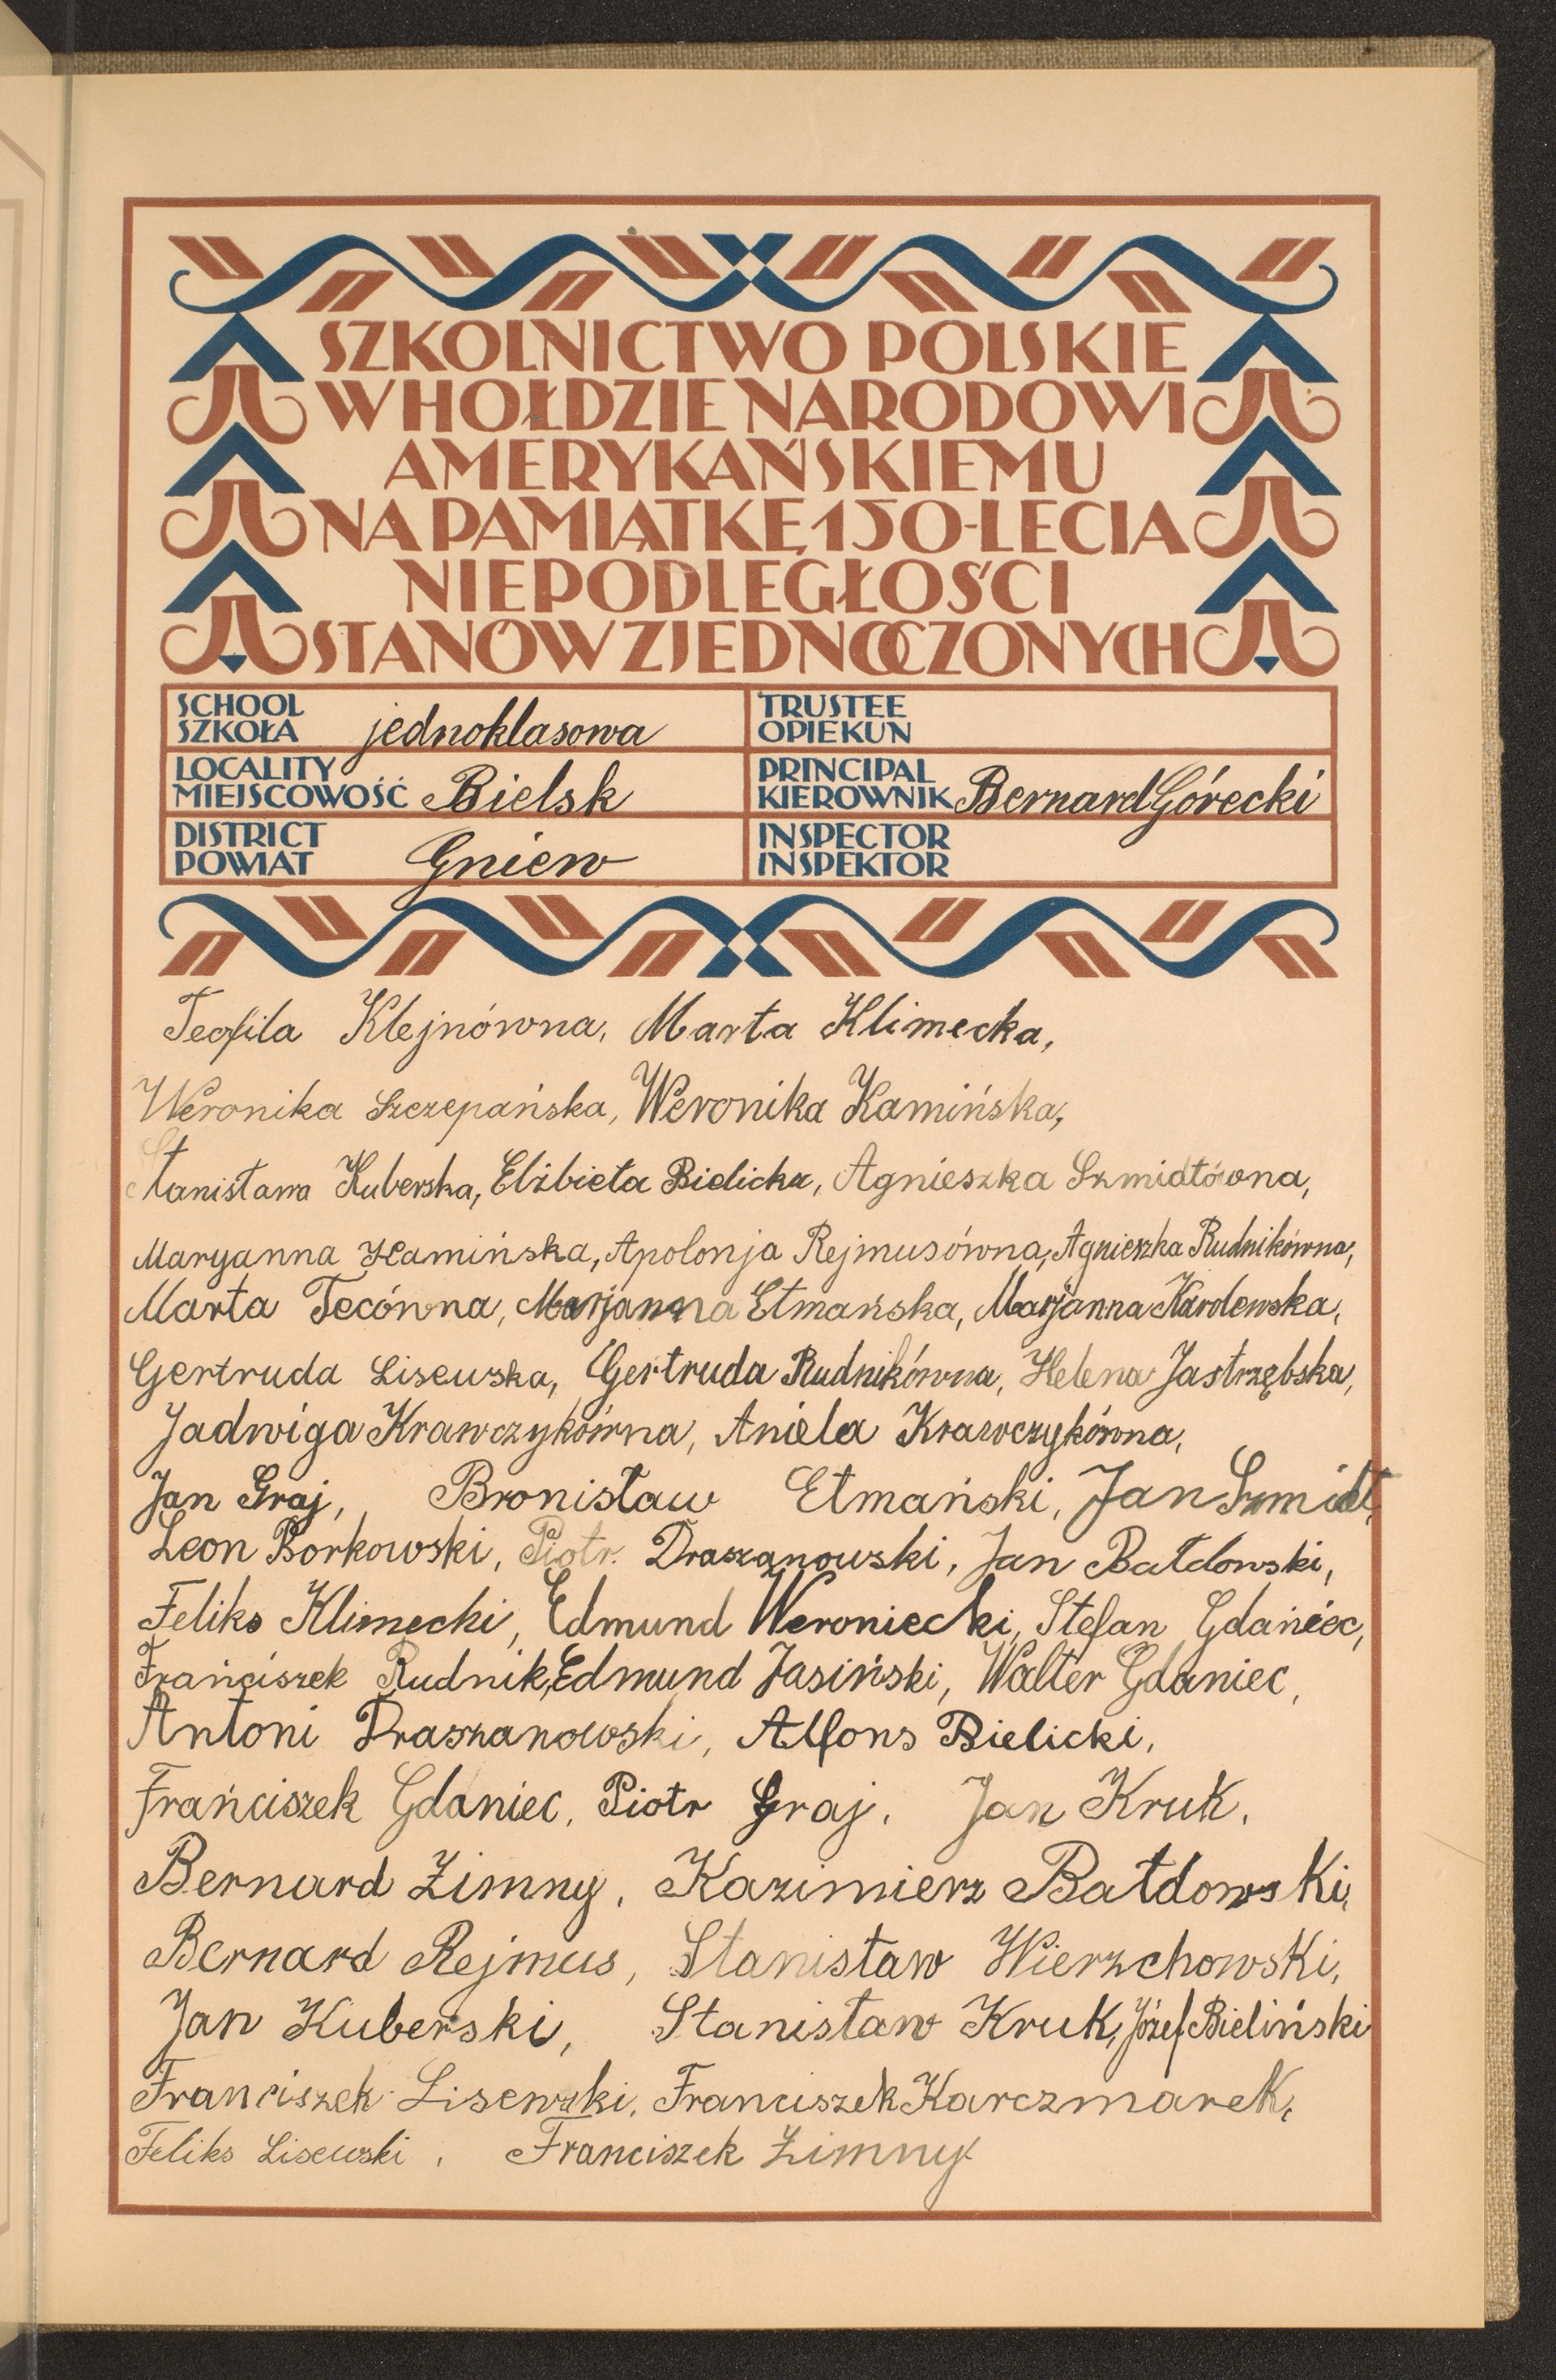 SZKOLNICTWO POLSKIE
W HOŁDZIE NARODOWI
AMERYKAŃSKIEMU
NA PAMIĄTKĘ 150-LECIA
NIEPODLEGŁOŚCI
STANÓW ZJEDNOCZONYCH
SCHOOL
SZKOŁA jednoklasowa
TRUSTEE
OPIEKUN
LOCALITY
MIEJSCOWOŚĆ Bielsk
PRINCIPAL
KIEROWNIK Bernard Górecki
DISTRICT
POWIAT Gniew
INSPECTOR
INSPEKTOR
Teofila Klejnówna, Marta Klimecka,
Weronika Szczepańska, Weronika Kamińska,
Stanisława Kuberska, Elżbieta Bielicka, Agnieszka Szmidtówna,
Maryanna Kamińska, Apolonja Rejmusówna, Agnieszka Rudnikówna,
Marta Tecówna, Marjanna Etmańska, Marjanna Karolewska,
Gertruda Lisewska, Gertruda Rudnikówna, Helena Jastrzębska,
Jadwiga Krawczykówna, Aniela Krawczykówna,
Jan Graj, Bronisław Etmański, Jan Szmidt,
Leon Borkowski, Piotr Draszanowski, Jan Bałdowski,
Feliks Klimecki, Edmund Weroniecki, Stefan Gdaniec,
Frańciszek Rudnik, Edmund Jasiński, Walter Gdaniec,
Antoni Draszanowski, Alfons Bielicki,
Frańciszek Gdaniec, Piotr Graj, Jan Kruk,
Bernard Zimny, Kazimierz Bałdowski,
Bernard Rejmus, Stanisław Wierzchowski,
Jan Kuberski, Stanisław Kruk, Józef Bieliński
Franciszek Lisewski, Franciszek Karczmarek,
Feliks Lisewski, Franciszek Zimny